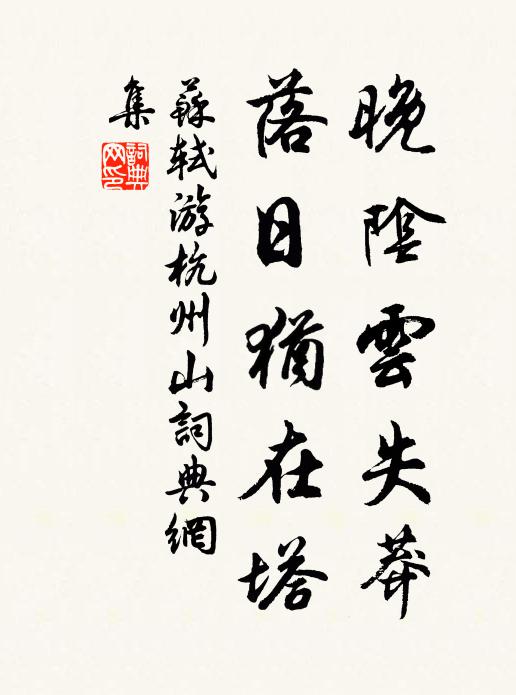 晚陰雲失莽
落日猶在塔
蘇軾游杭州山詞典網
集
詞典网印